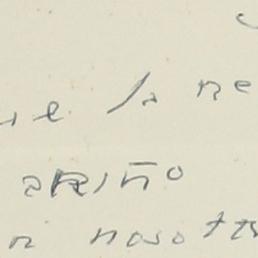 ue la ne
cariño
n nosotr